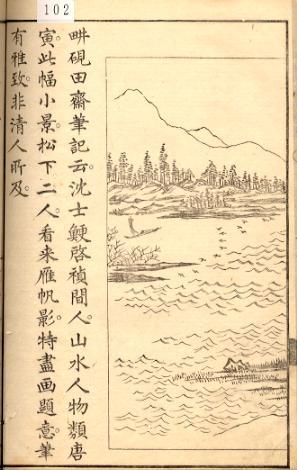 102
畊硯田齋筆記云。沈士鯁啓禎間人。山水人物類唐
寅。此幅小景。松下二人。看来雁帆影。特盡画題意。筆
有雅致。非清人所及。